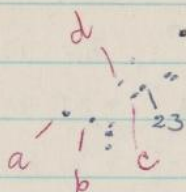 d
23
a
b
c